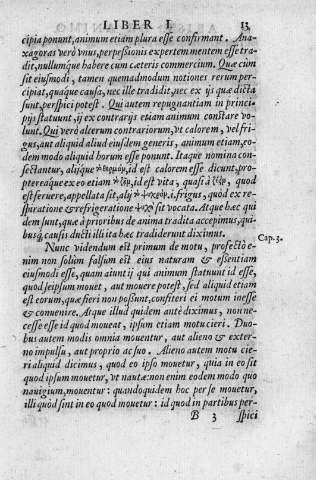 LIBER I. 13
cipia ponunt, animum etiam plura esse confirmant. Ana-
xagoras verò vnus, perpessionis expertem mentem esse tra-
dit, nullumque habere cum cæteris commercium. Quæ cùm
sit eiusmodi, tamen quemadmodum notiones rerum per-
cipiat, quáque causa, nec ille tradidit, nec ex ijs quæ dicta
sunt, perspici potest. Qui autem repugnantiam in princi-
pijs statuunt, ij ex contrarijs etiam animum constare vo-
lunt. Qui verò alterum contrariorum, vt calorem, vel fri-
gus, aut aliquid aliud eiusdem generis, animum etiam, eo-
dem modo aliquid horum esse ponunt. Itaque nomina con-
sectantur, alijque id est calorem esse dicunt, pro-
ptereaque ex eo etiam id est vita, quasi à quod
est feruere, appellata sit, alij frigus, quod ex re-
spiratione & refrigeratione sit vocata. Atque hæc qui
dem sunt, quæ à prioribus de anima tradita accepimus, qui-
busq; causis ducti illi ita hæc tradiderunt diximus.
Nunc videndum est primum de motu, profectò e- Cap. 3.
nim non solùm falsum est eius naturam & essentiam
eiusmodi esse, quam aiunt ij qui animum statuunt id esse,
quod seipsum mouet, aut mouere potest, sed aliquid etiam
est eorum, quæ fieri non possunt, si ei motum inesse
& conuenire. Atque illud quidem antè diximus, non ne-
cesse esse id quod moueat, ipsum etiam motu cieri. Duo-
bus autem modis omnia mouentur, aut alieno & exter-
no impulsu, aut proprio ac suo. Alieno autem motu cie-
ri aliquid dicimus, quod eo ipso mouetur, quia in eo sit
quod ipsum mouetur, vt nautæ: non enim eodem modo quo
nauigium, mouentur: quandoquidem hoc per se mouetur,
illi quòd sint in eo quod mouetur: id quod in partibus per-
B 3 spici